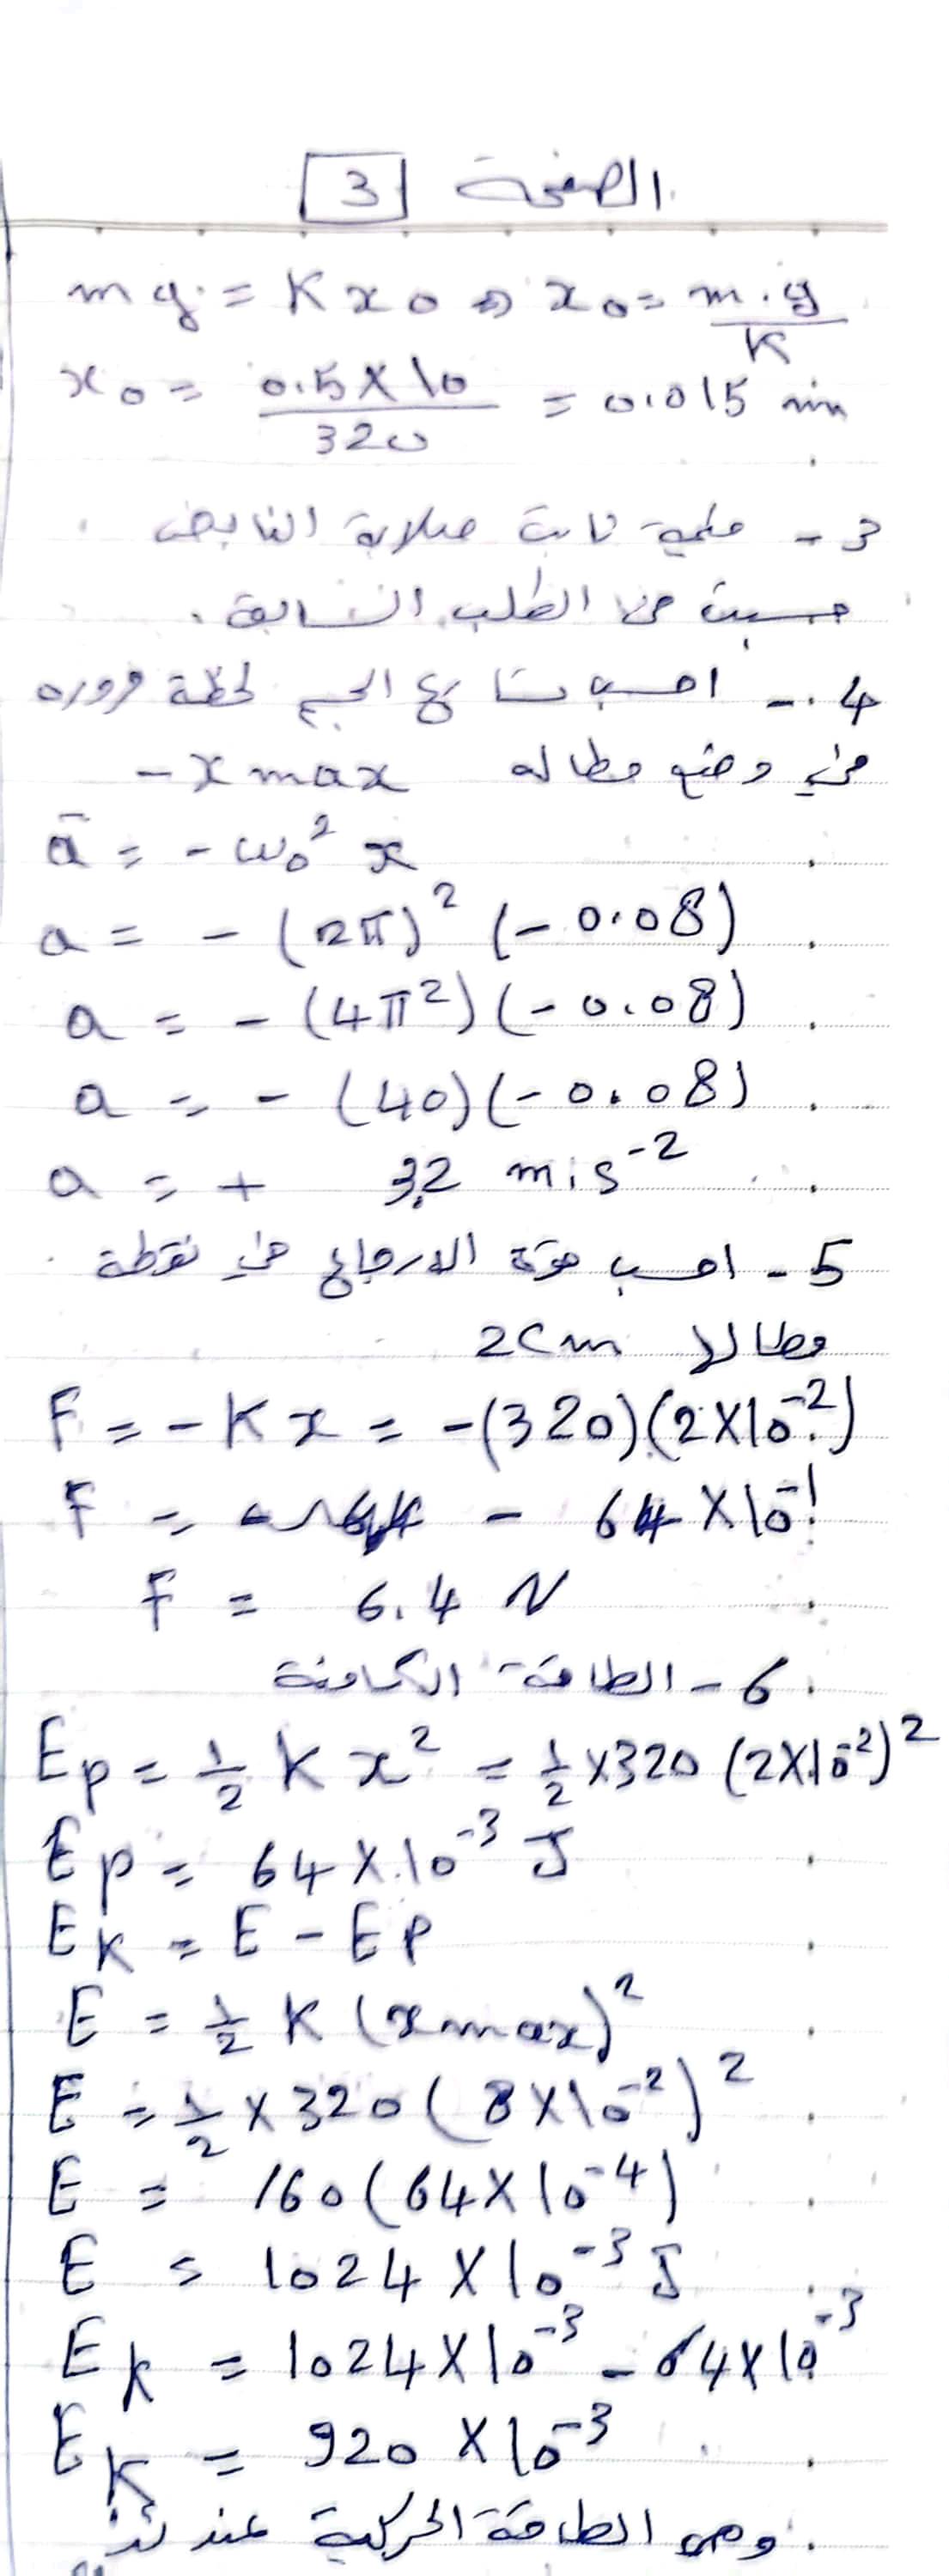 الصفحة 3
mg = K x0 ⇒ x0 = m.g / K
x0 = 0.5 × 10 / 320 = 0.015 m
3 - قيمة ثابت صلابة النابض
حسبت من الطلب السابق.
4 - احسب تسارع الجسم لحظة مروره
في وضع مطاله -xmax
ā = -ω0² x
a = - (2π)² (-0.08)
a = - (4π²) (-0.08)
a = - (40) (-0.08)
a = + 3.2 m.s⁻²
5 - احسب قوة الارجاع في نقطة
مطالها 2cm
F = -Kx = -(320)(2×10⁻²)
F = - 64 × 10⁻¹
F = 6.4 N
6 - الطاقة الكامنة
Ep = ½ K x² = ½ × 320 (2×10⁻²)²
Ep = 64 × 10⁻³ J
EK = E - EP
E = ½ K (xmax)²
E = ½ × 320 (8×10⁻²)²
E = 160 (64×10⁻⁴)
E = 1024 × 10⁻³ J
Ek = 1024 × 10⁻³ - 64×10⁻³
EK = 920 × 10⁻³
وهي الطاقة الحركية عندئذ.